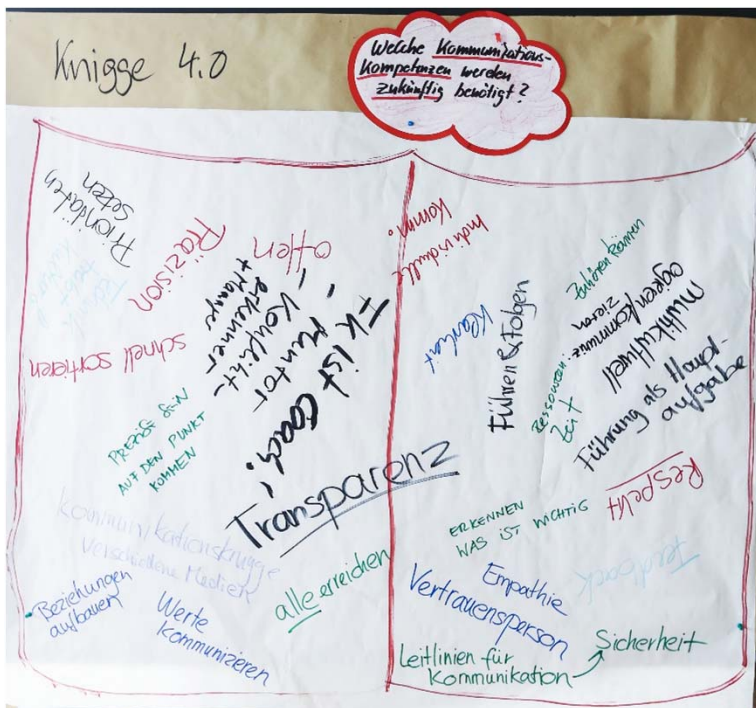 Knigge 4.0
Welche Kommunikations-
Kompetenzen werden
zukünftig benötigt?
Prioritäten
setzen
Präzision
offen
schnell sortieren
FK ist Coach,
Mentor,
Konflikt-
erkenner
+ Manager
PREZISE SEIN
AUF DEN PUNKT
KOMMEN
Transparenz
Kommunikationsknigge
Verschiedene Medien
alle erreichen
Beziehungen
aufbauen
Werte
kommunizieren
Individuelle
Komm.
Klarheit
Führen & Folgen
zuhören
Ressourcen:
Zeit
multikulturell
Führung als Haupt-
aufgabe
Respekt
ERKENNEN
WAS IST WICHTIG
Feedback
Empathie
Vertrauensperson
Leitlinien für
Kommunikation
Sicherheit